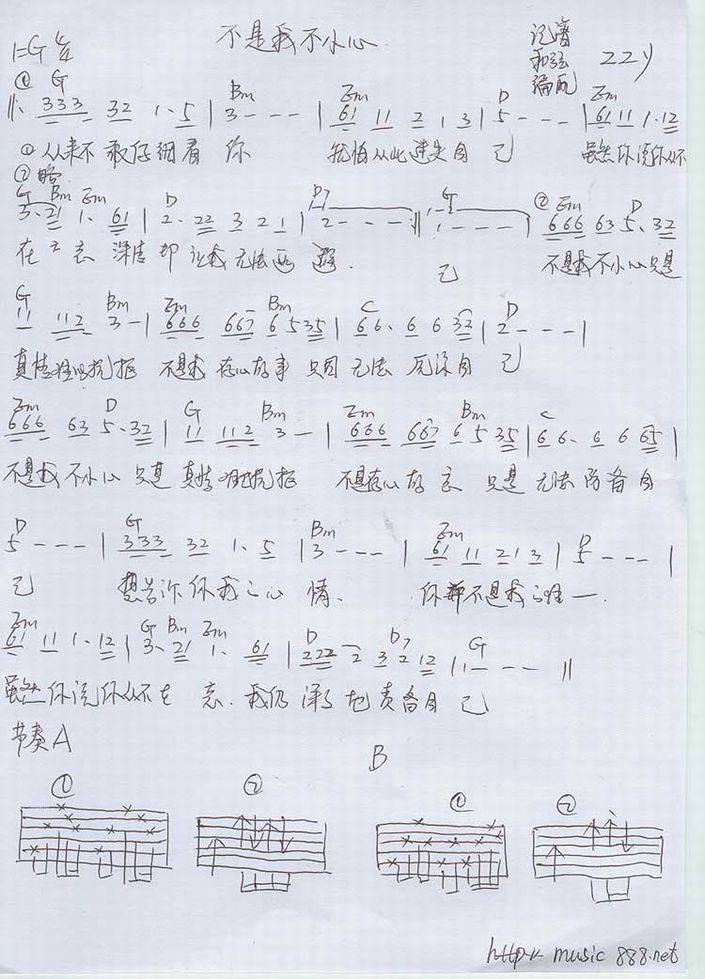 不是我不小心
1=G 4/4
记谱
和弦
编配
zzy
① G Bm Em D Em
333 32 1· 5 | 3 - - - | 61 11 2 1 3 | 5 - - - | 61 11 1·12
①从来不敢仔细看你 就怕从此迷失自己 虽然你说你从不
②略
G Bm Em D D7 G ② Em D
3·21 1· 61 | 2·22 3 2 1 | 2 - - - - || 1 - - - - 666 63 5·32
在乎 深情却让我无法 己 不是我不小心只是
G Bm Em Bm C D
11 112 3 - | 666 667 6 5 35 | 66· 6 6 32 | 2 - - - |
真情难以抗拒 不是我存心故事 只因无法 自己
Em D G Bm Em Bm C
666 63 5·32 | 11 112 3 - | 666 667 6 5 35 | 66· 6 6 65 |
不是我不小心只是真情难以抗拒 不是存心故意 只是无法防备自
D G Bm Em D
5 - - - | 333 32 1· 5 | 3 - - - | 61 11 21 3 | 5 - - - |
己 想告诉你我的心情、 你并不是我的唯一.
Em G Bm Em D D7 G
61 11 1·12 | 3·21 1· 61 | 222 2 3 2 12 | 1 - - - ||
虽然你说你从不在意.我仍深深地责备自己
节奏A B
① ② ① ②
http:// music 888.net